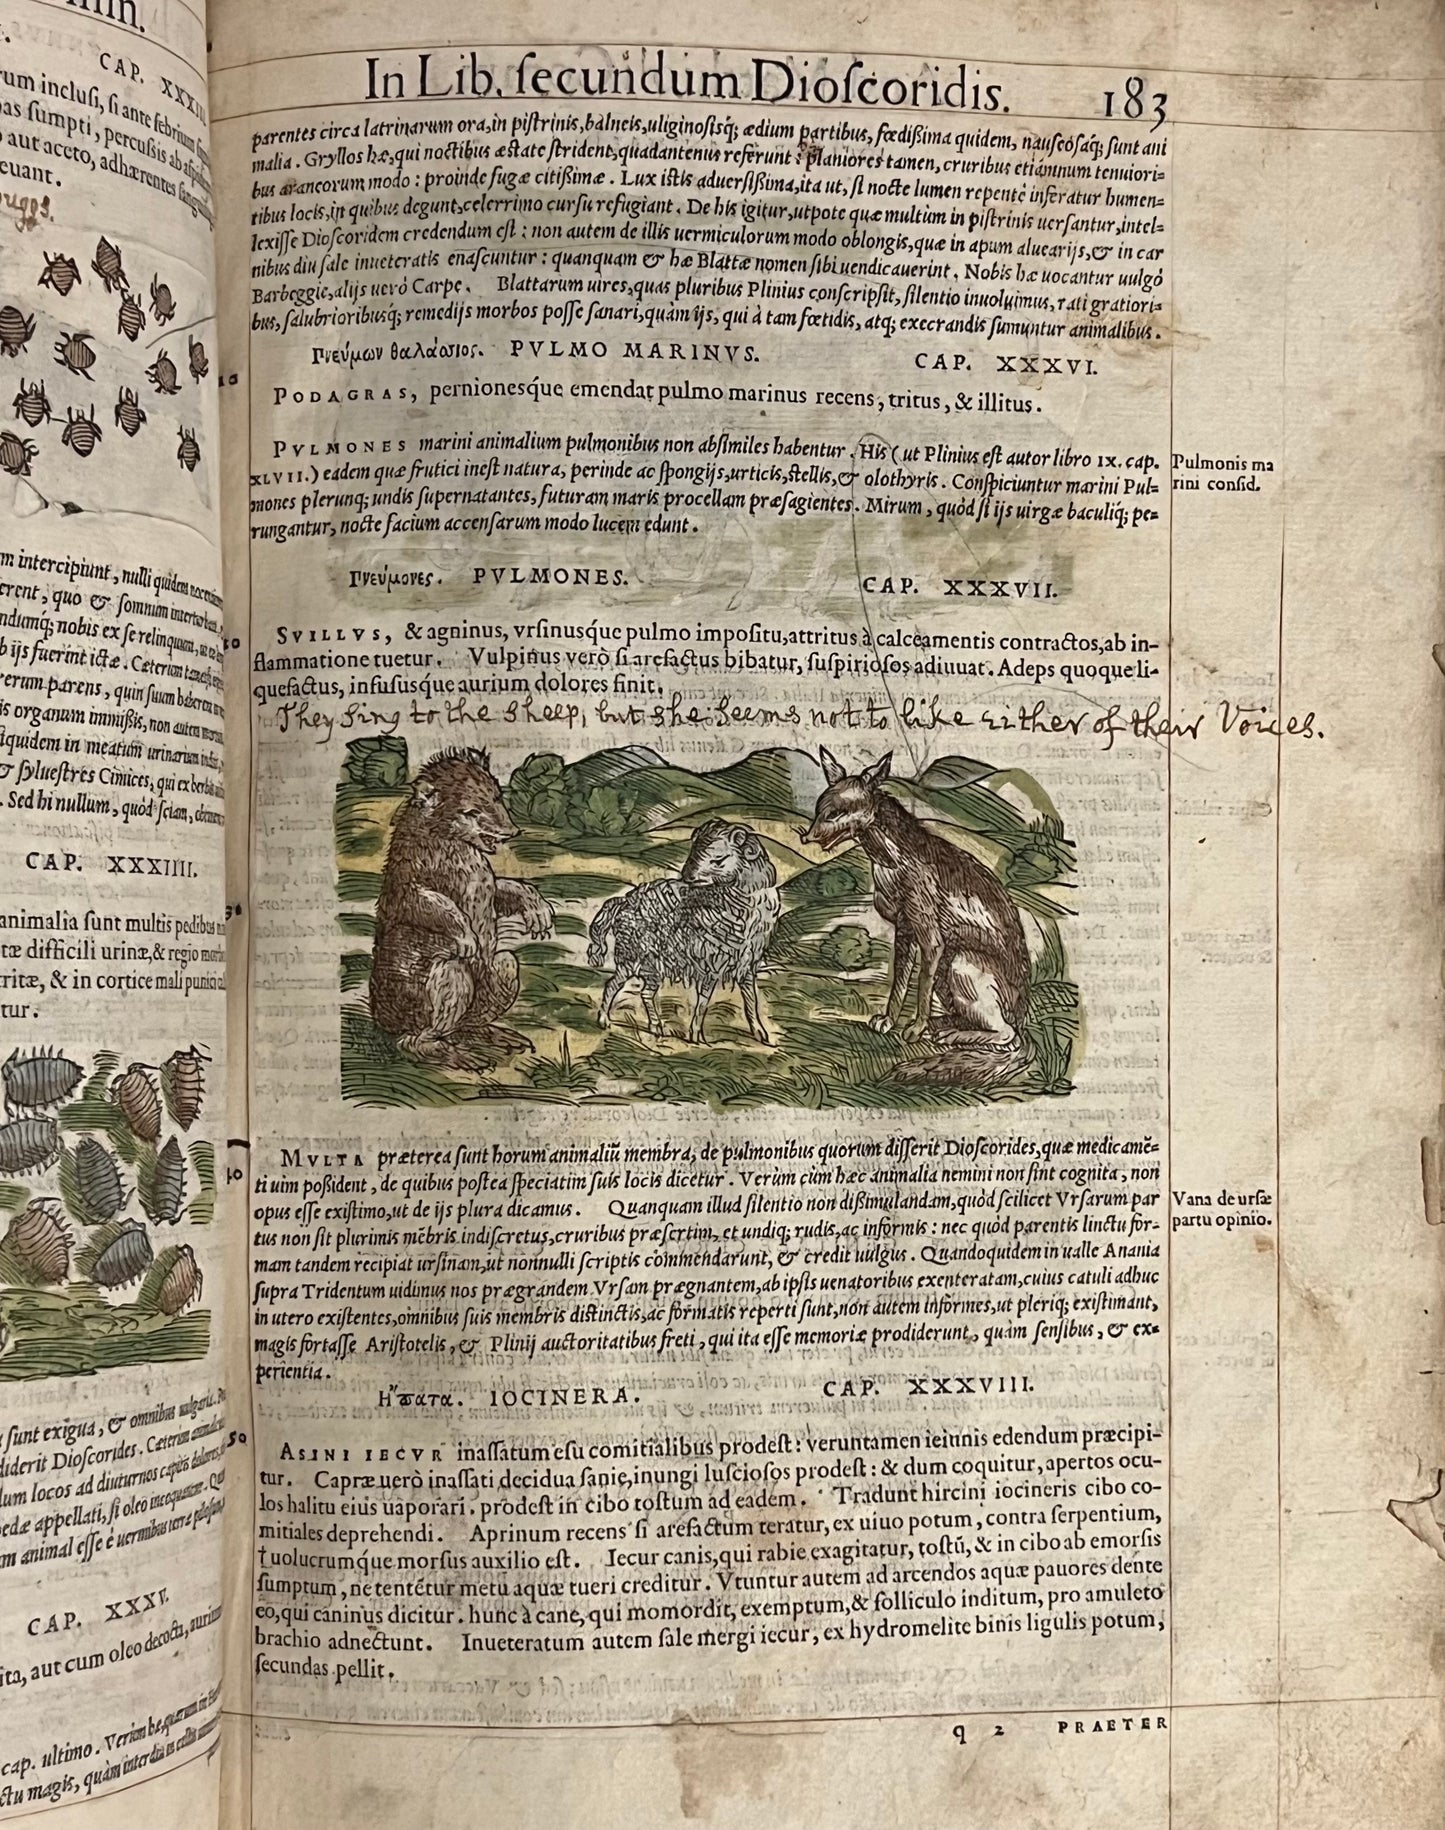 CAP. XXXIII
rum inclusi, si ante febrium
as sumpti, percussis ab aspide
aut aceto, adhærentes sangui
euant.
m intercipiunt, nulli quidem
erent, quo & somnum interturba
ndumq́; nobis ex se relinquunt
b ijs fuerint ictæ. Cæterum
erum parens, quin suum
is organum immißis, non autem
iquidem in meatum urinarium
& syluestres Cimices, qui ex herbis
. Sed hi nullum, quòd sciam,
CAP. XXXIIII.
animalia sunt multis pedibus
tæ difficili urinæ, & regio
ritæ, & in cortice mali punici
tur.
sunt exigua, & omnibus uulgaria.
diderit Dioscorides. Cæterum
lum locos ad diuturnos capitis dolores
edæ appellati, si oleo incoquantur.
m animal esse è uermibus terræ
CAP. XXXV.
ita, aut cum oleo decocta, aurium
cap. ultimo. Verùm hæ, quarum in
ctu magis, quàm interdiu in
In Lib. ſecundum Dioſcoridis. 183
parentes circa latrinarum ora, in piſtrinis, balneis, uliginoſisq́; ædium partibus, fœdißima quidem, nauſeoſaq́; ſunt ani
malia. Gryllos hæ, qui noctibus æſtate ſtrident, quadantenus referunt: planiores tamen, cruribus etiámnum tenuiori=
bus araneorum modo: proinde fugæ citißimæ. Lux iſtis aduerſißima, ita ut, ſi nocte lumen repentè inferatur humen=
tibus locis, in quibus degunt, celerrimo curſu refugiant. De his igitur, utpote quæ multùm in piſtrinis uerſantur, intel=
lexiſſe Dioſcoridem credendum eſt: non autem de illis uermiculorum modo oblongis, quæ in apum aluearijs, & in car
nibus diu ſale inueteratis enaſcuntur: quanquam & hæ Blattæ nomen ſibi uendicauerint. Nobis hæ uocantur uulgò
Barbeggie, alijs uerò Carpe. Blattarum uires, quas pluribus Plinius conſcripſit, ſilentio inuoluimus, rati gratiori=
bus, ſalubrioribusq́; remedijs morbos poſſe ſanari, quàm ijs, qui à tam fœtidis, atq; execrandis ſumuntur animalibus.
10
Πνεύμων θαλάσσιος. PVLMO MARINVS. CAP. XXXVI.
PODAGRAS, pernionesq́ue emendat pulmo marinus recens, tritus, & illitus.
PVLMONES marini animalium pulmonibus non abſimiles habentur. His (ut Plinius eſt autor libro IX. cap.
XLVII.) eadem quæ frutici ineſt natura, perinde ac ſpongijs, urticis, ſtellis, & olothyris. Conſpiciuntur marini Pul=
mones plerunq; undis ſupernatantes, futuram maris procellam præſagientes. Mirum, quòd ſi ijs uirgæ baculiq; pe=
rungantur, nocte facium accenſarum modo lucem edunt.
Pulmonis ma
rini conſid.
Πνεύμονες. PVLMONES. CAP. XXXVII.
20
SVILLVS, & agninus, vrſinusq́ue pulmo impoſitu, attritus à calceamentis contractos, ab in-
flammatione tuetur. Vulpinus verò ſi arefactus bibatur, ſuſpirioſos adiuuat. Adeps quoque li-
quefactus, infuſusq́ue aurium dolores finit.
They Sing to the Sheep, but she seems not to like Either of their Voices.
30
40
MVLTA præterea ſunt horum animaliū membra, de pulmonibus quorum diſſerit Dioſcorides, quæ medicamē=
ti uim poßident, de quibus poſtea ſpeciatim ſuis locis dicetur. Verùm cùm hæc animalia nemini non ſint cognita, non
opus eſſe exiſtimo, ut de ijs plura dicamus. Quanquam illud ſilentio non dißimulandam, quòd ſcilicet Vrſarum par
tus non ſit plurimis mēbris indiſcretus, cruribus præſertim, et undiq; rudis, ac informis: nec quòd parentis linctu for-
mam tandem recipiat urſinam, ut nonnulli ſcriptis commendarunt, & credit uulgus. Quandoquidem in ualle Anania
ſupra Tridentum uidimus nos prægrandem Vrſam prægnantem, ab ipſis uenatoribus exenteratam, cuius catuli adhuc
in utero exiſtentes, omnibus ſuis membris diſtinctis, ac formatis reperti ſunt, non autem informes, ut pleriq; exiſtimant,
magis fortaſſe Ariſtotelis, & Plinij auctoritatibus freti, qui ita eſſe memoriæ prodiderunt, quàm ſenſibus, & ex=
perientia.
Vana de urſæ
partu opinio.
Η῎πατα. IOCINERA. CAP. XXXVIII.
50
ASINI IECVR inaſſatum eſu comitialibus prodeſt: veruntamen ieiunis edendum præcipi-
tur. Capræ uerò inaſſati decidua ſanie, inungi luſcioſos prodeſt: & dum coquitur, apertos ocu-
los halitu eius uaporari. prodeſt in cibo toſtum ad eadem. Tradunt hircini iocineris cibo co-
mitiales deprehendi. Aprinum recens ſi arefactum teratur, ex uiuo potum, contra ſerpentium,
† uolucrumq́ue morſus auxilio eſt. Iecur canis, qui rabie exagitatur, toſtū, & in cibo ab emorſis
ſumptum, ne tentētur metu aquæ tueri creditur. Vtuntur autem ad arcendos aquæ pauores dente
eo, qui caninus dicitur. hunc à cane, qui momordit, exemptum, & folliculo inditum, pro amuleto
brachio adnectunt. Inueteratum autem ſale mergi iecur, ex hydromelite binis ligulis potum,
ſecundas pellit.
q 2 PRAETER